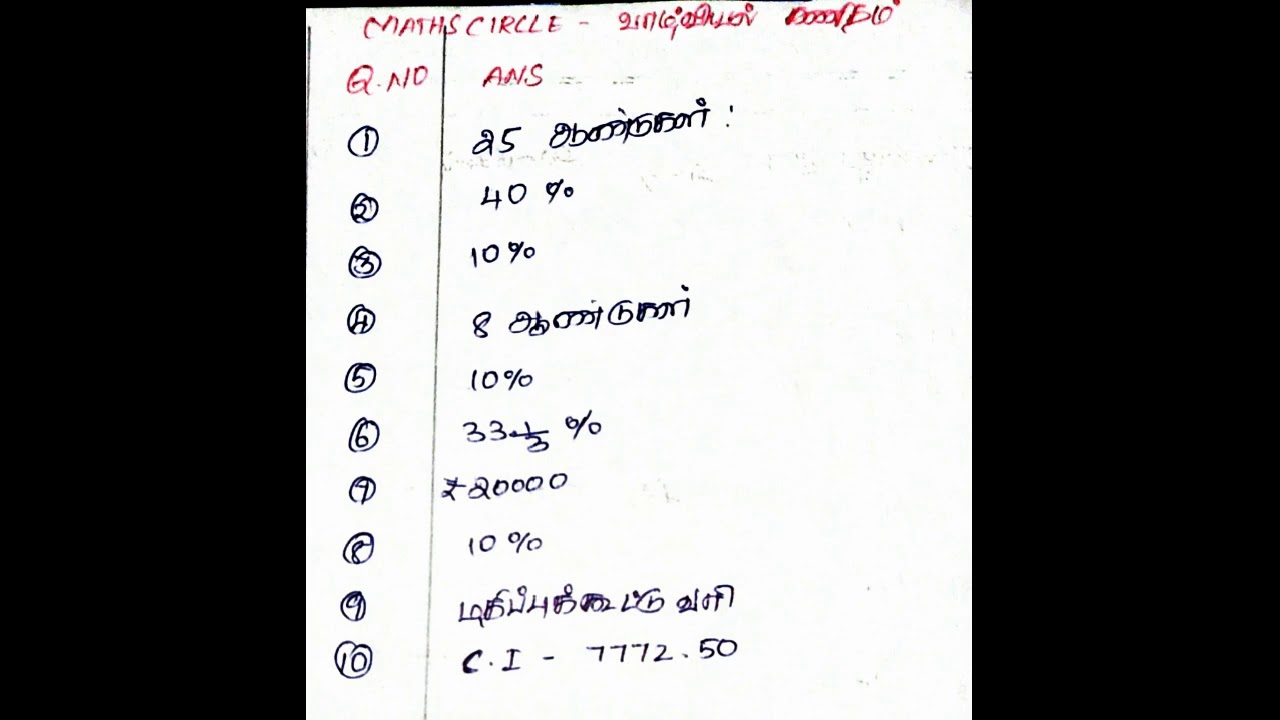 MATHS CIRCLE - வாழ்வியல் கணிதம்
Q.NO ANS
① 25 ஆண்டுகள் :
② 40 %
③ 10%
④ 8 ஆண்டுகள்
⑤ 10%
⑥ 33 1/3 %
⑦ ₹ 20000
⑧ 10 %
⑨ மதிப்புக்கூட்டு வளி
⑩ C.I - 7772.50